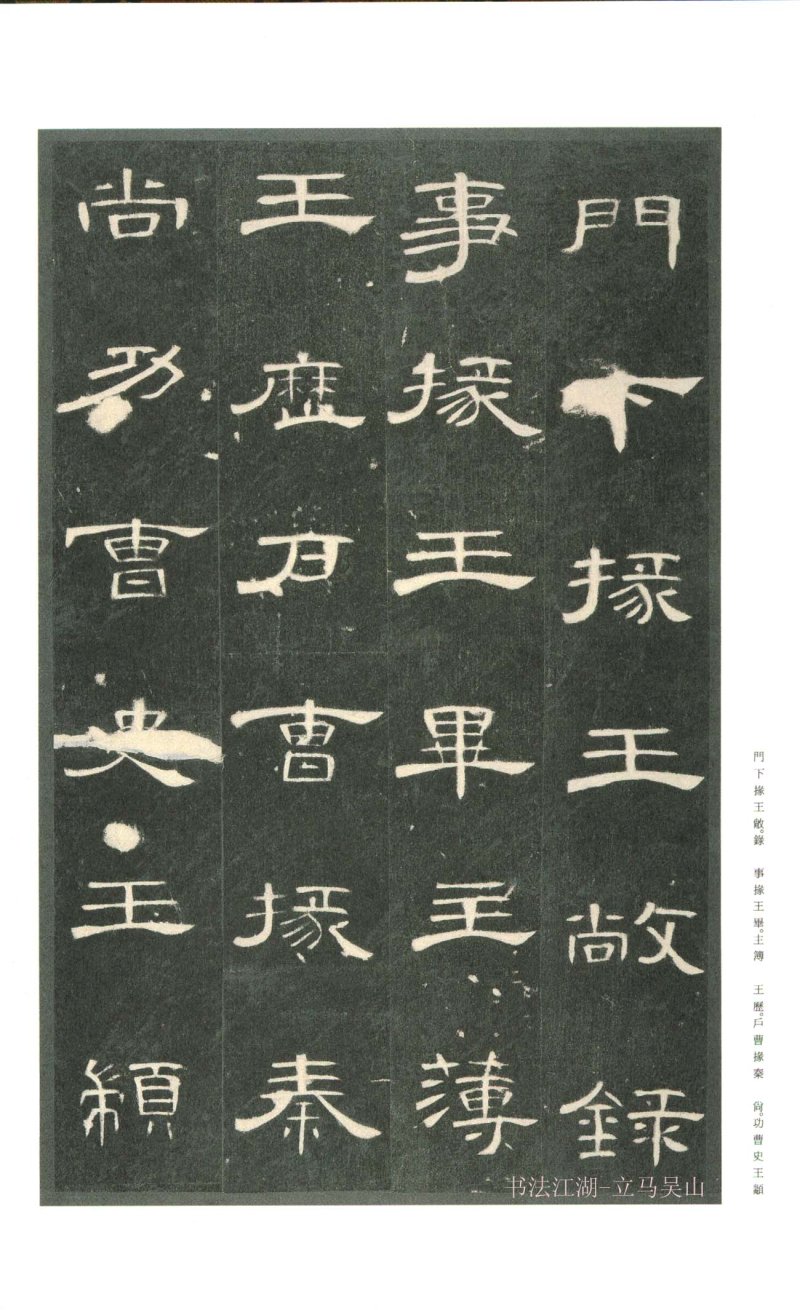 門下掾王敞錄
事掾王畢主薄
王歷戶曹掾秦
尚功曹史王顓
門下掾王敞。錄 事掾王畢。主簿 王歷。戶曹掾秦 尚。功曹史王顓
书法江湖-立马吴山